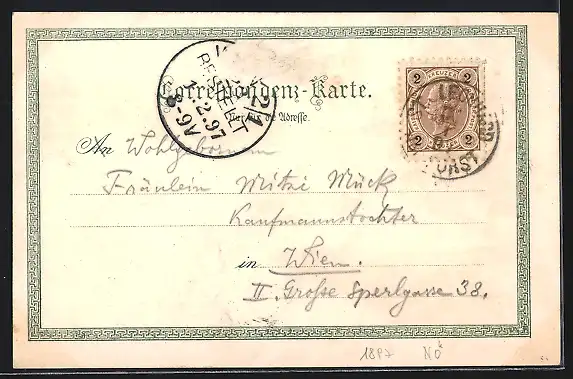 Correspondenz-Karte.
Nur für die Adresse.
BESTELLT
2/1
2.97
8-
2 KREUZER 2
2 2
An Wohlgeboren
Fräulein Mitzi Mück
Kaufmannstochter
in Wien.
II. Grosse Sperlgasse 38.
1897 NÖ